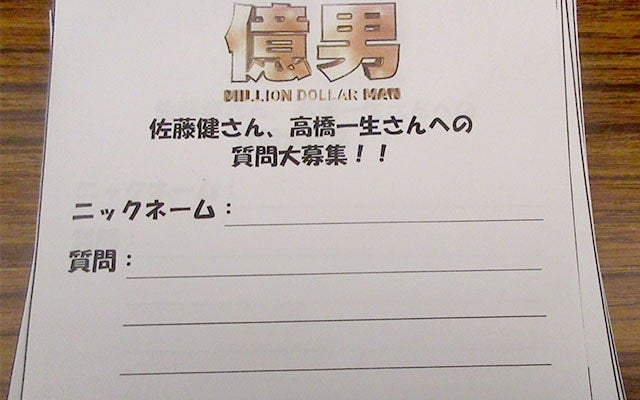 億男
MILLION DOLLAR MAN
佐藤健さん、高橋一生さんへの
質問大募集！！
ニックネーム：
質問：